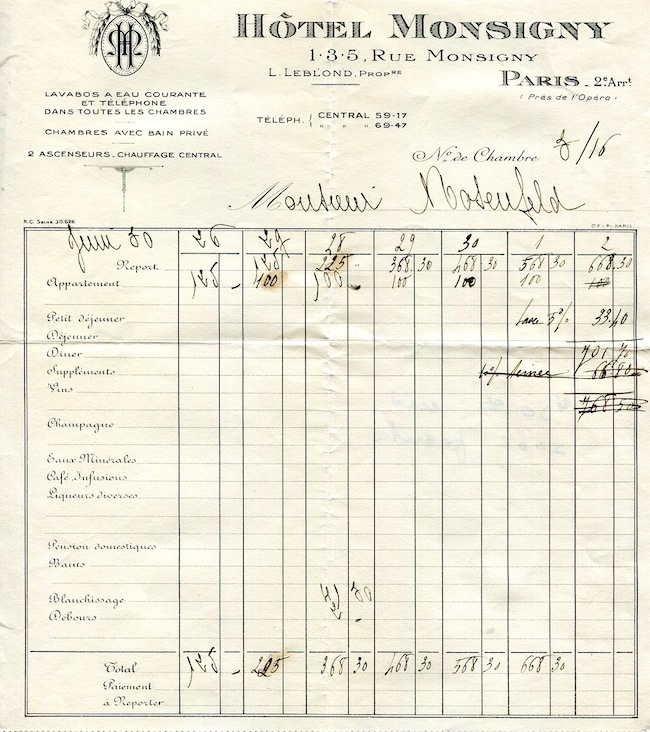 HÔTEL MONSIGNY
1·3·5, RUE MONSIGNY
L. LEBLOND, PROPRE
PARIS_2e Arrt
(Près de l'Opéra)
LAVABOS A EAU COURANTE
ET TÉLÉPHONE
DANS TOUTES LES CHAMBRES
CHAMBRES AVEC BAIN PRIVÉ
2 ASCENSEURS_CHAUFFAGE CENTRAL
TÉLÉPH. { CENTRAL 59-17
" " 69-47
No de Chambre /16
Monsieur Rosenfeld
R.C. SEINE 30.626
Juin 30 26 29 28 29 30 1 2
Report 125 225 - 368 30 468 30 568 30 668 30
Appartement 125 - 100 100 - 100 100 100 100
Petit déjeuner taxe 5% 33.40
Déjeuner
Diner 701 70
Suppléments 66 80
Vins
768 50
Champagne
Eaux Minérales
Café Infusions
Liqueurs diverses
Pension domestiques
Bains
Blanchissage 41 30
Débours 2 -
Total 125 - 225 368 30 468 30 568 30 668 30
Paiement
à Reporter